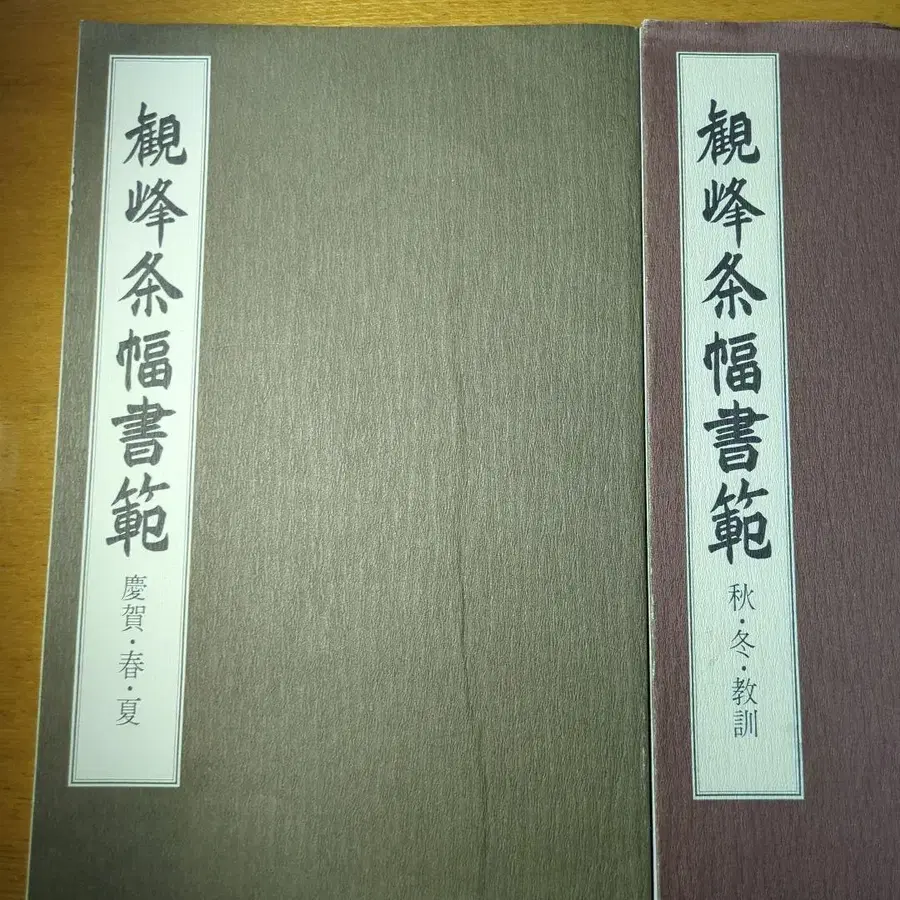 観峰条幅書範
慶賀・春・夏
観峰条幅書範
秋・冬・教訓